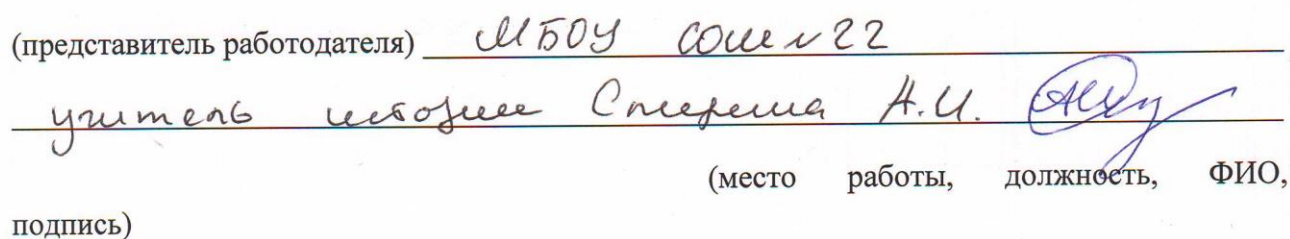 (представитель работодателя) МБОУ СОШ №22
учитель истории А.И.
(место работы, должность, ФИО,
подпись)